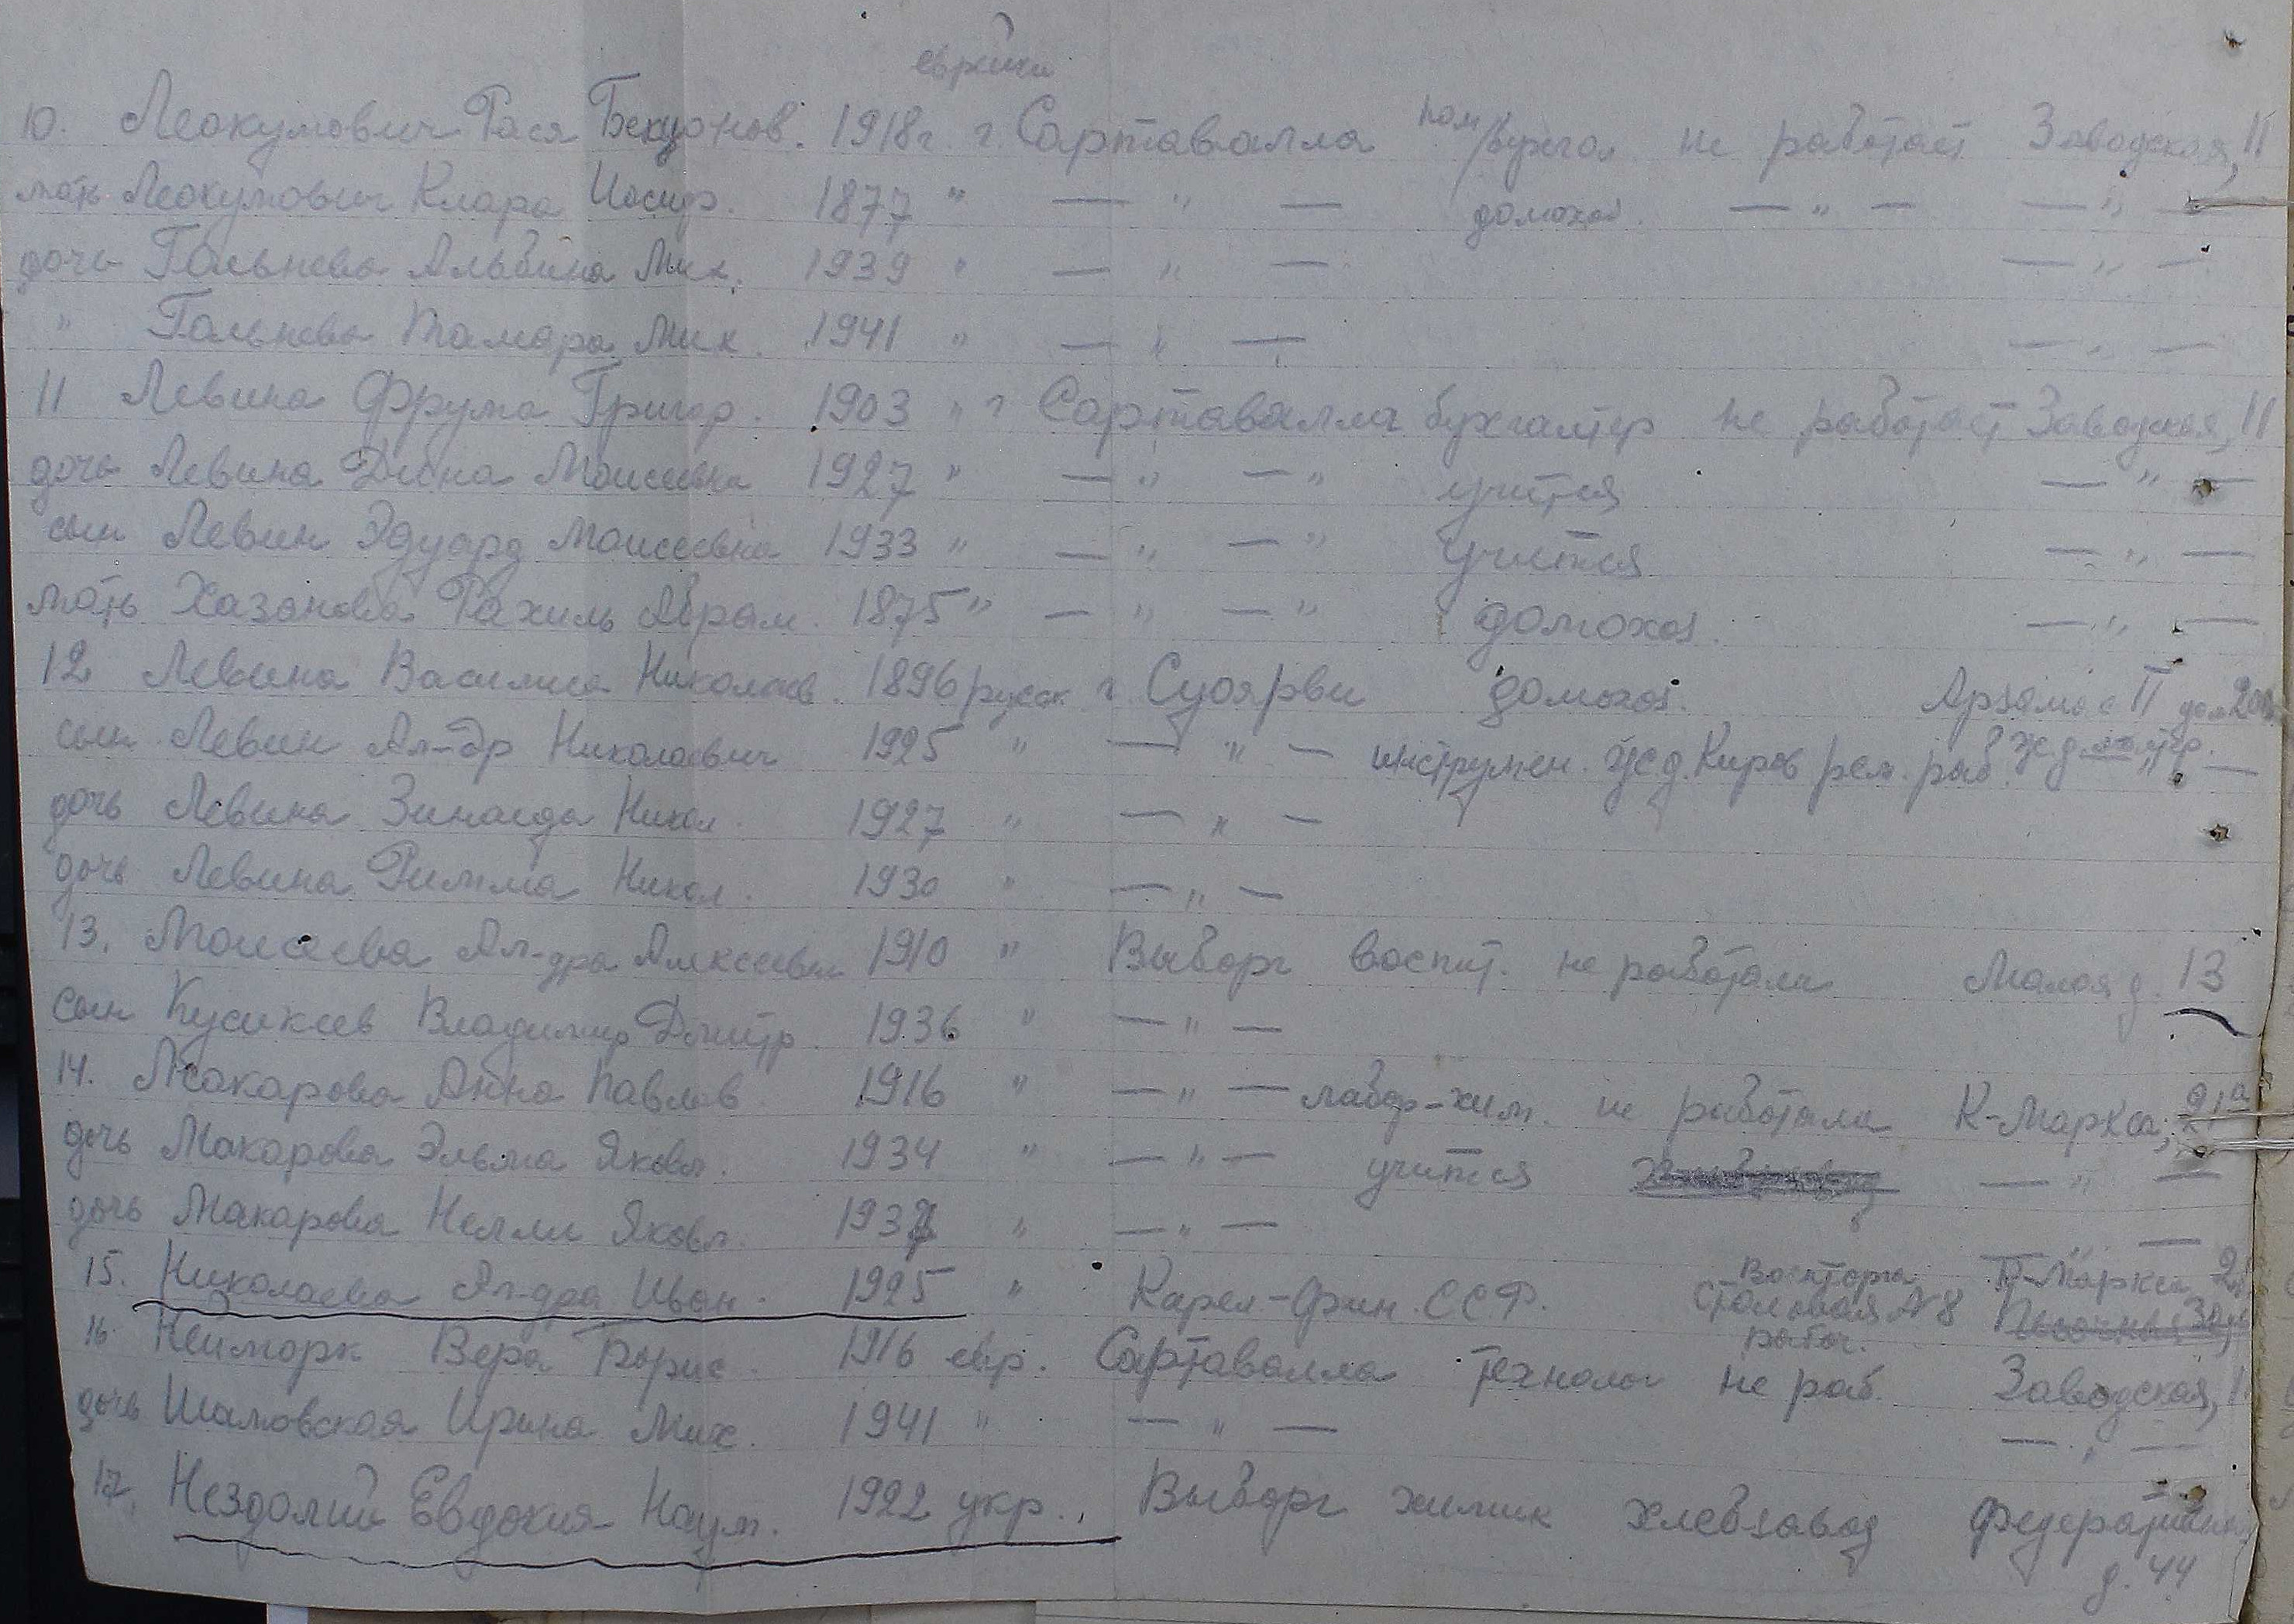 еврейки
10. Леокумович Рася Бенционов. 1918 г. г. Сартавалла пом/бухгал не работает Заводская, 11
мать Леокумович Клара Иосиф. 1877 " — " — домохоз. — " — — " —
дочь Гольнева Альбина Мих. 1939 " — " — — " —
" Гольнева Тамара Мих. 1941 " — " — — " —
11 Левина Фрума Григор. 1903 " г Сартавалла бухгалтер не работает Заводская, 11
дочь Левина Диана Моисеевна 1927 " — " — " учится — " —
сын Левин Эдуард Моисеевна 1933 " — " — " учится — " —
мать Хазанова Рахиль Абрам. 1875 " — " — " домохоз. — " —
12 Левина Василиса Николаев. 1896 русск г. Суоярви домохоз. Арзамас II дом
сын Левин Ал-др Николаевич 1925 " — " — инструмен. ж.д. Киров рем. раб. — " —
дочь Левина Зинаида Никол. 1927 " — " —
дочь Левина Римма Никол. 1930 " — " —
13. Моисеева Ал-дра Алексеевна 1910 " Выборг воспит. не работала Малая д. 13
Сын Кусикеев Владимир Дмитр. 1936 " — " —
14. Макарова Анна Павлов 1916 " — " — лабор-хим. не работала К-Маркса, 21а
дочь Макарова Эльма Яковл. 1934 " — " — учится — " —
дочь Макарова Нелли Яковл. 1937 " — " — — " —
15. Николаева Ал-дра Иван. 1925 " Карел-Фин. ССР. Военторга столовая N 8 рабоч. К-Маркса
16. Неймарк Вера Борис. 1916 евр. Сартавалла технолог не раб. Заводская, 1
дочь Шамовская Ирина Мих. 1941 " — " — — " —
17. Нездолий Евдокия Наум. 1922 укр. Выборг химик хлебзавод
д. 44